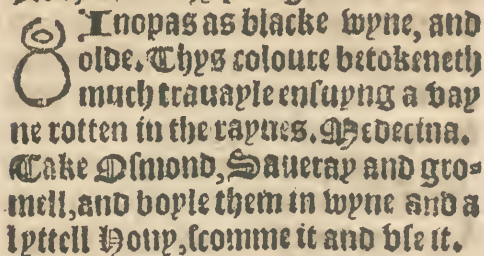 8 Inopas as blacke wyne, and
olde. Thys coloure betokeneth
much trauayle ensuyng a vay
ne rotten in the raynes. Medecina.
Take Osmond, Saueray and gro-
mell, and boyle them in wyne and a
lyttell Hony, scomme it and vse it.